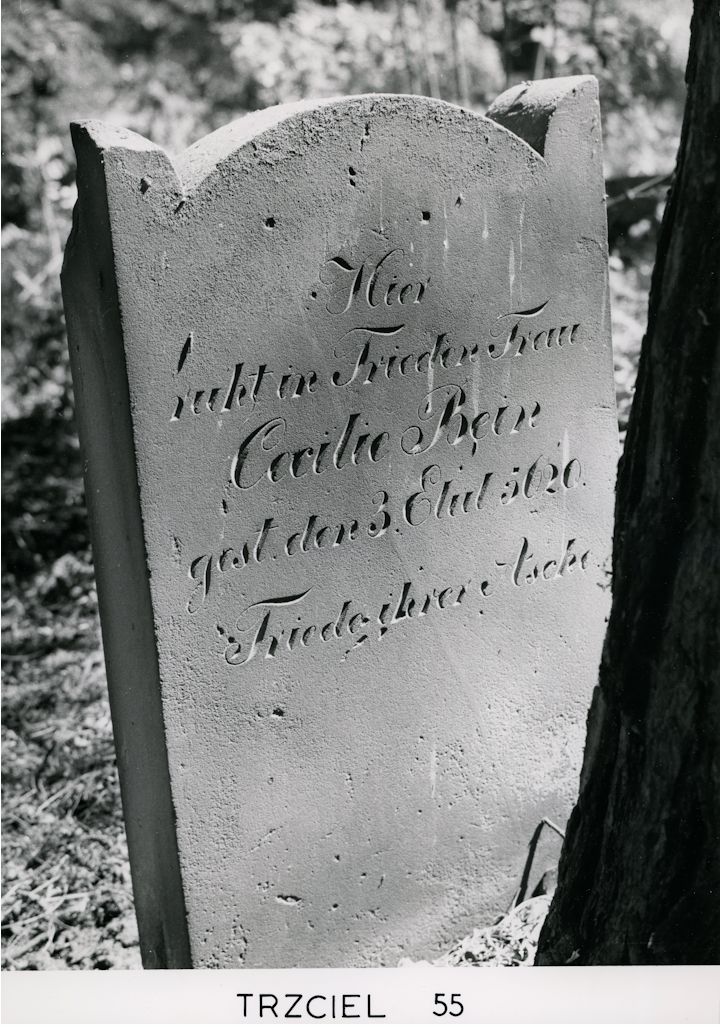 Hier
ruht in Frieden Frau
Cecilie Bein
gest. den 3. Elul 5620.
Friede ihrer Asche.
TRZCIEL 55